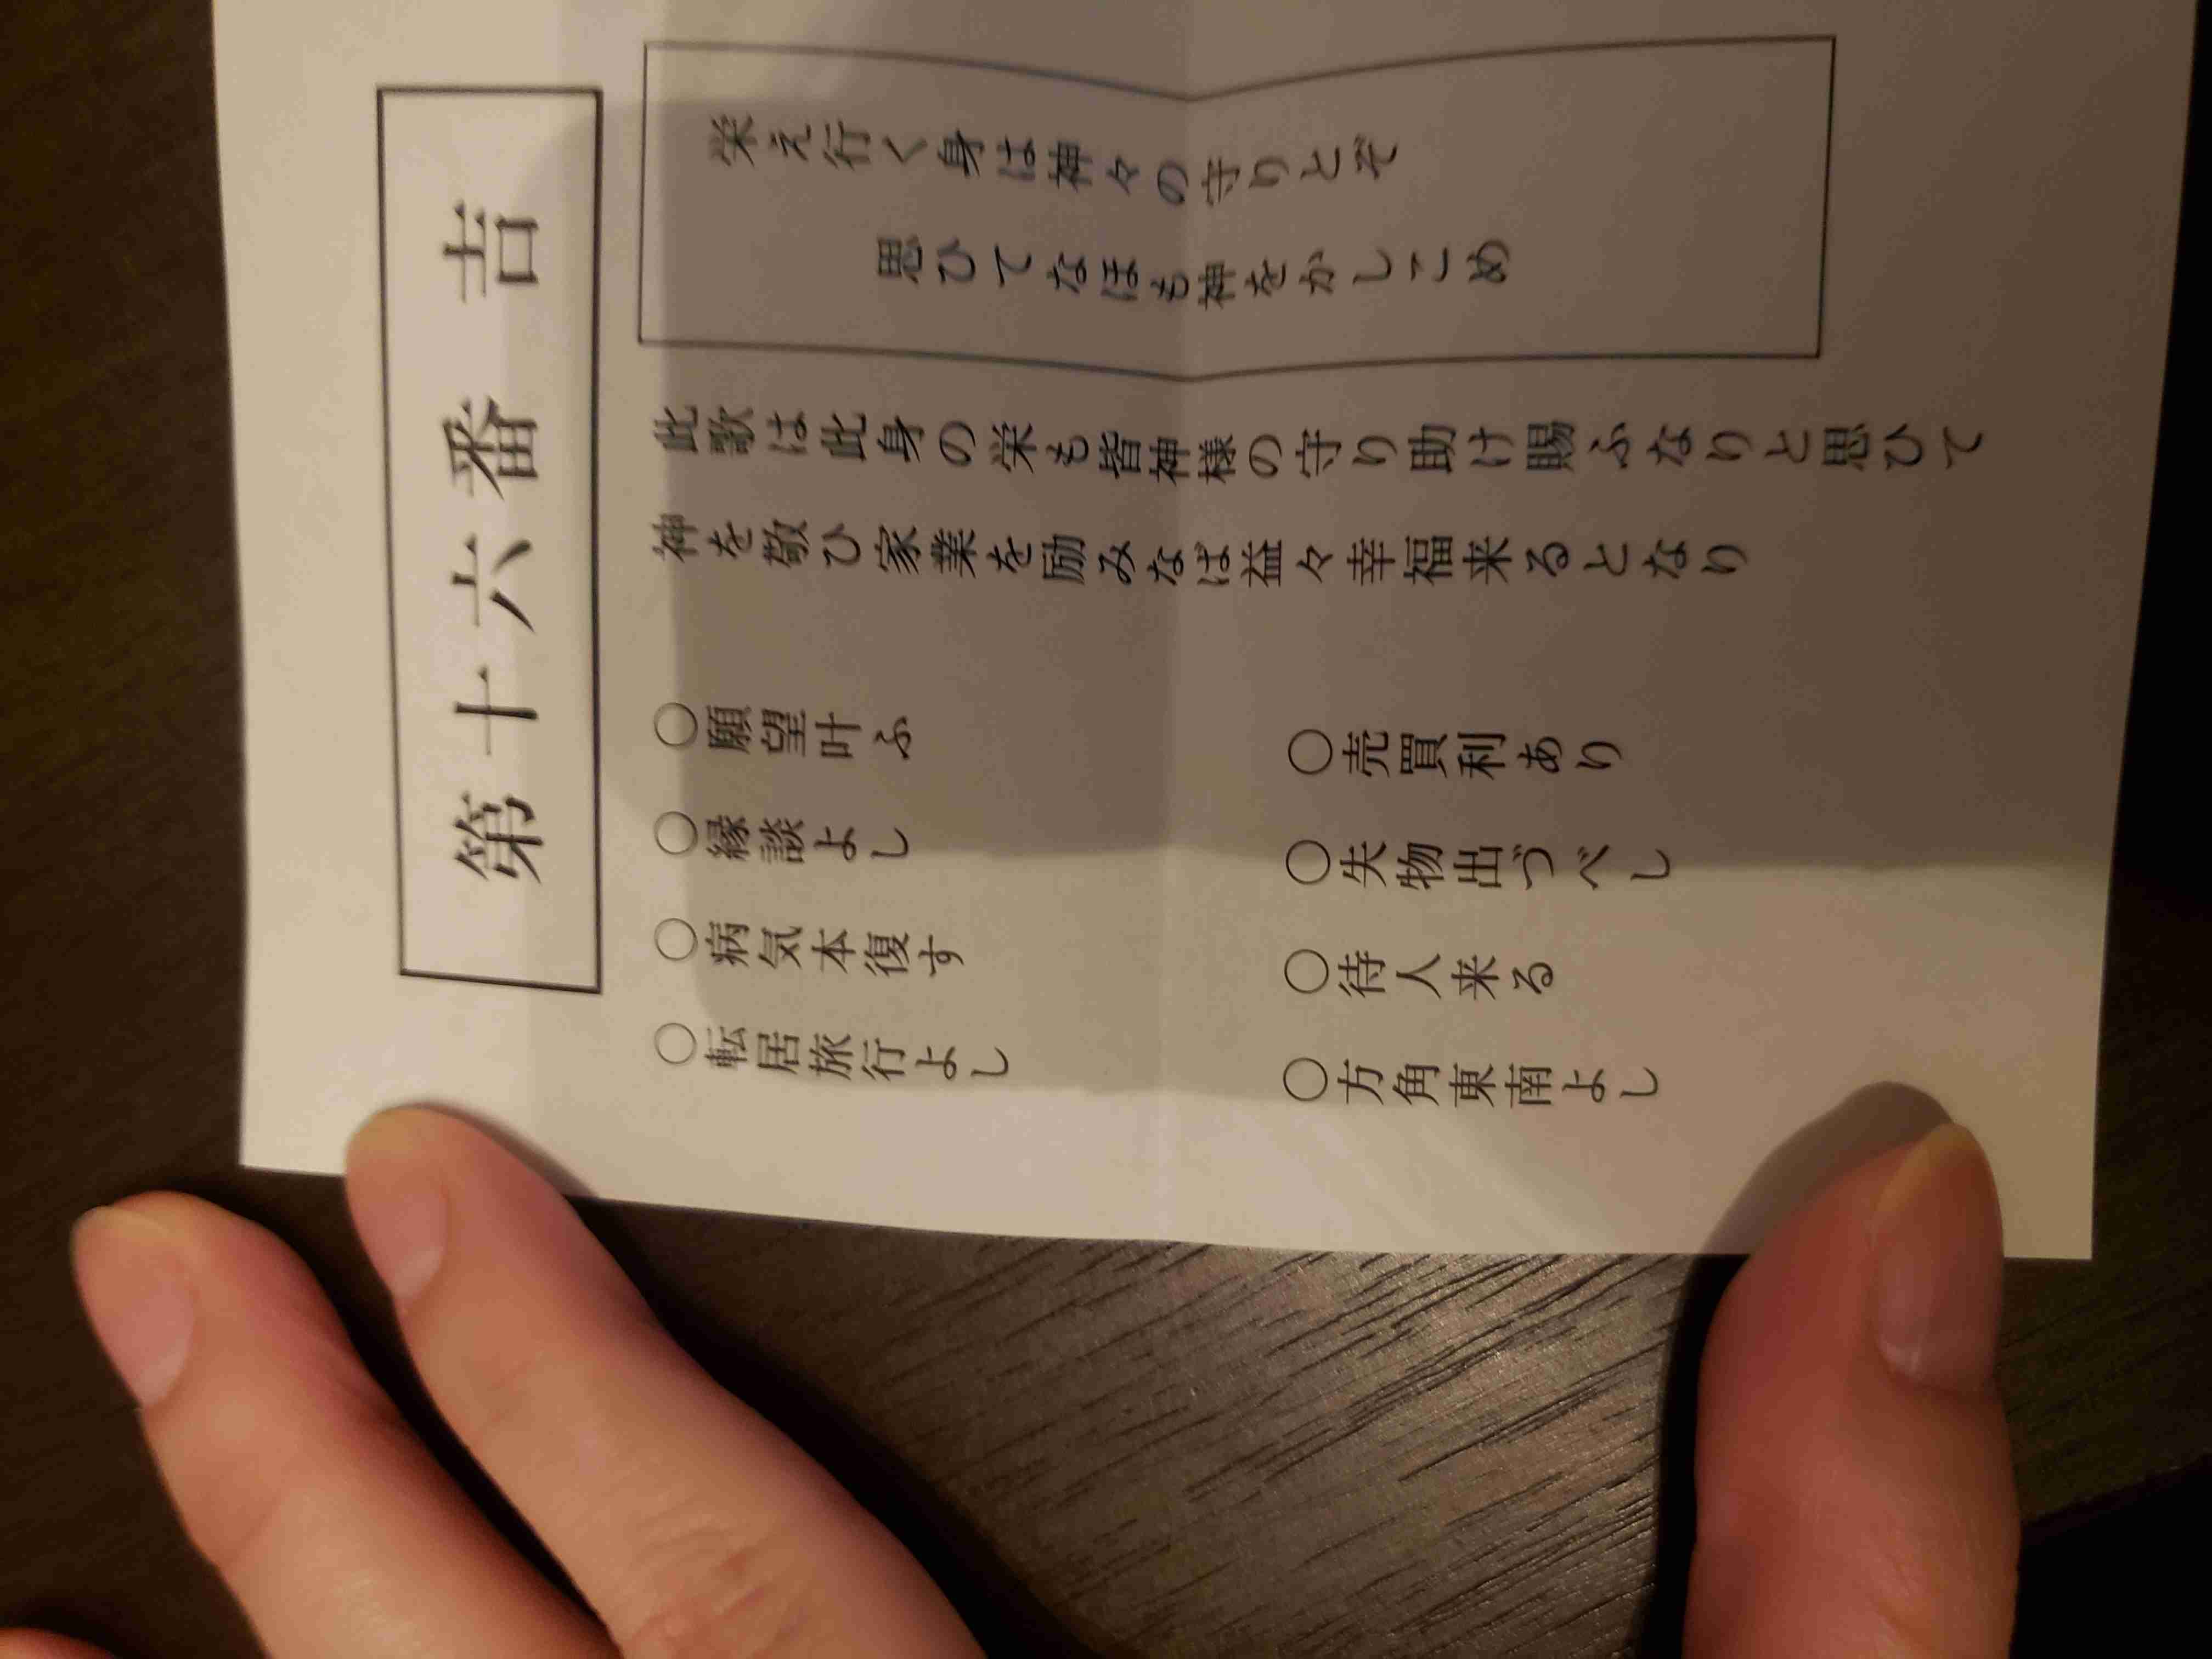 第十六番 吉
栄え行く身は神々の守りとぞ
思ひてなほも神をかしこめ
此歌は此身の栄も皆神様の守り助け賜ふなりと思ひて
神を敬ひ家業を励みなば益々幸福来るとなり
○願望叶ふ
○売買利あり
○縁談よし
○失物出づべし
○病気本復す
○待人来る
○転居旅行よし
○方角東南よし